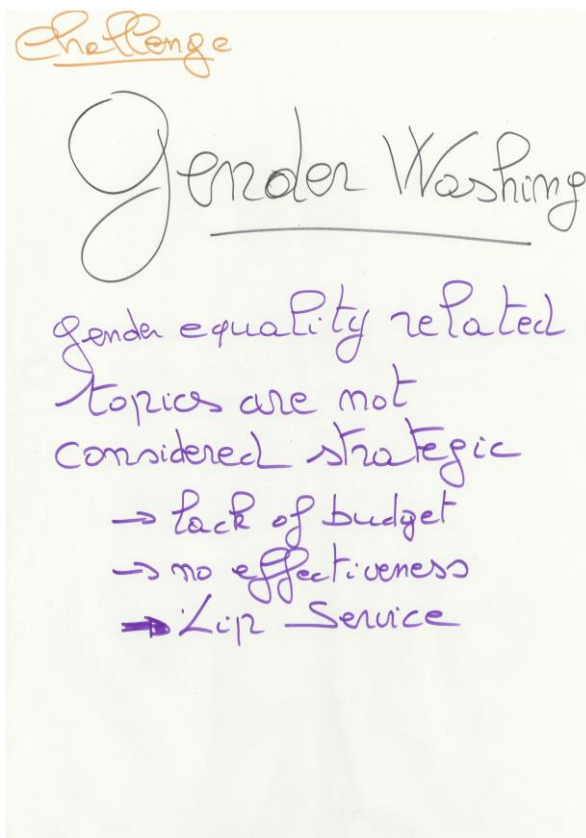 Challenge
Gender Washing
gender equality related
topics are not
considered strategic
→ lack of budget
→ no effectiveness
→ Lip Service